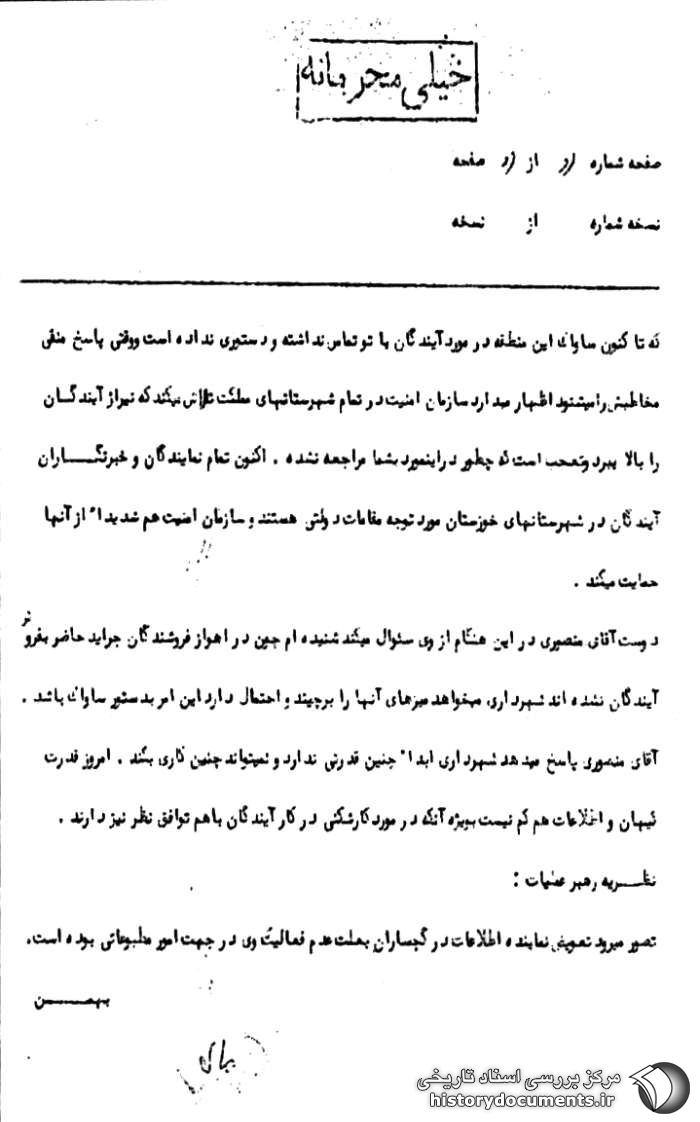 خیلی محرمانه
صفحه شماره از صفحه
نسخه شماره از نسخه
که تا کنون ساواک این منطقه در مورد آیندگان با تو تماس نداشته و دستوری نداده است ووقتی پاسخ منفی
مخاطبش را میشنود اظهار میدارد سازمان امنیت در تمام شهرستانهای مملکت تلاش میکند که تیراژ آیندگان
را بالا ببرد وتعجب است که چطور در اینمورد بشما مراجعه نشده . اکنون تمام نمایندگان و خبرنگاران
آیندگان در شهرستانهای خوزستان مورد توجه مقامات دولتی هستند و سازمان امنیت هم شدیدا" از آنها
حمایت میکند .
دوست آقای منصوری در این هنگام از وی سئوال میکند شنیده ام چون در اهواز فروشندگان جراید حاضر بفروش
آیندگان نشده اند شهرداری میخواهد میزهای آنها را برچیند و احتمال دارد این امر بدستور ساواک باشد .
آقای منصوری پاسخ میدهد شهرداری ابدا" چنین قدرتی ندارد و نمیتواند چنین کاری بکند . امروز قدرت
کیهان و اطلاعات هم کم نیست بویژه آنکه در مورد کارشکنی در کار آیندگان باهم توافق نظر نیز دارند .
نظریه رهبر عملیات :
تصور میرود تعویض نماینده اطلاعات در گچساران بعلت عدم فعالیت وی در جهت امور مطبوعاتی بوده است.
بهمن
مرکز بررسی اسناد تاریخی
historydocuments.ir